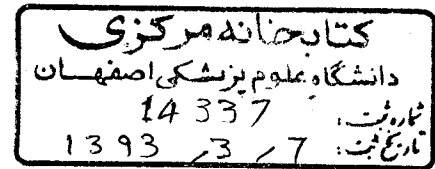 کتابخانه مرکزی
دانشگاه علوم پزشکی اصفهان
شماره ثبت: 14337
تاریخ ثبت: 7 / 3 / 1393